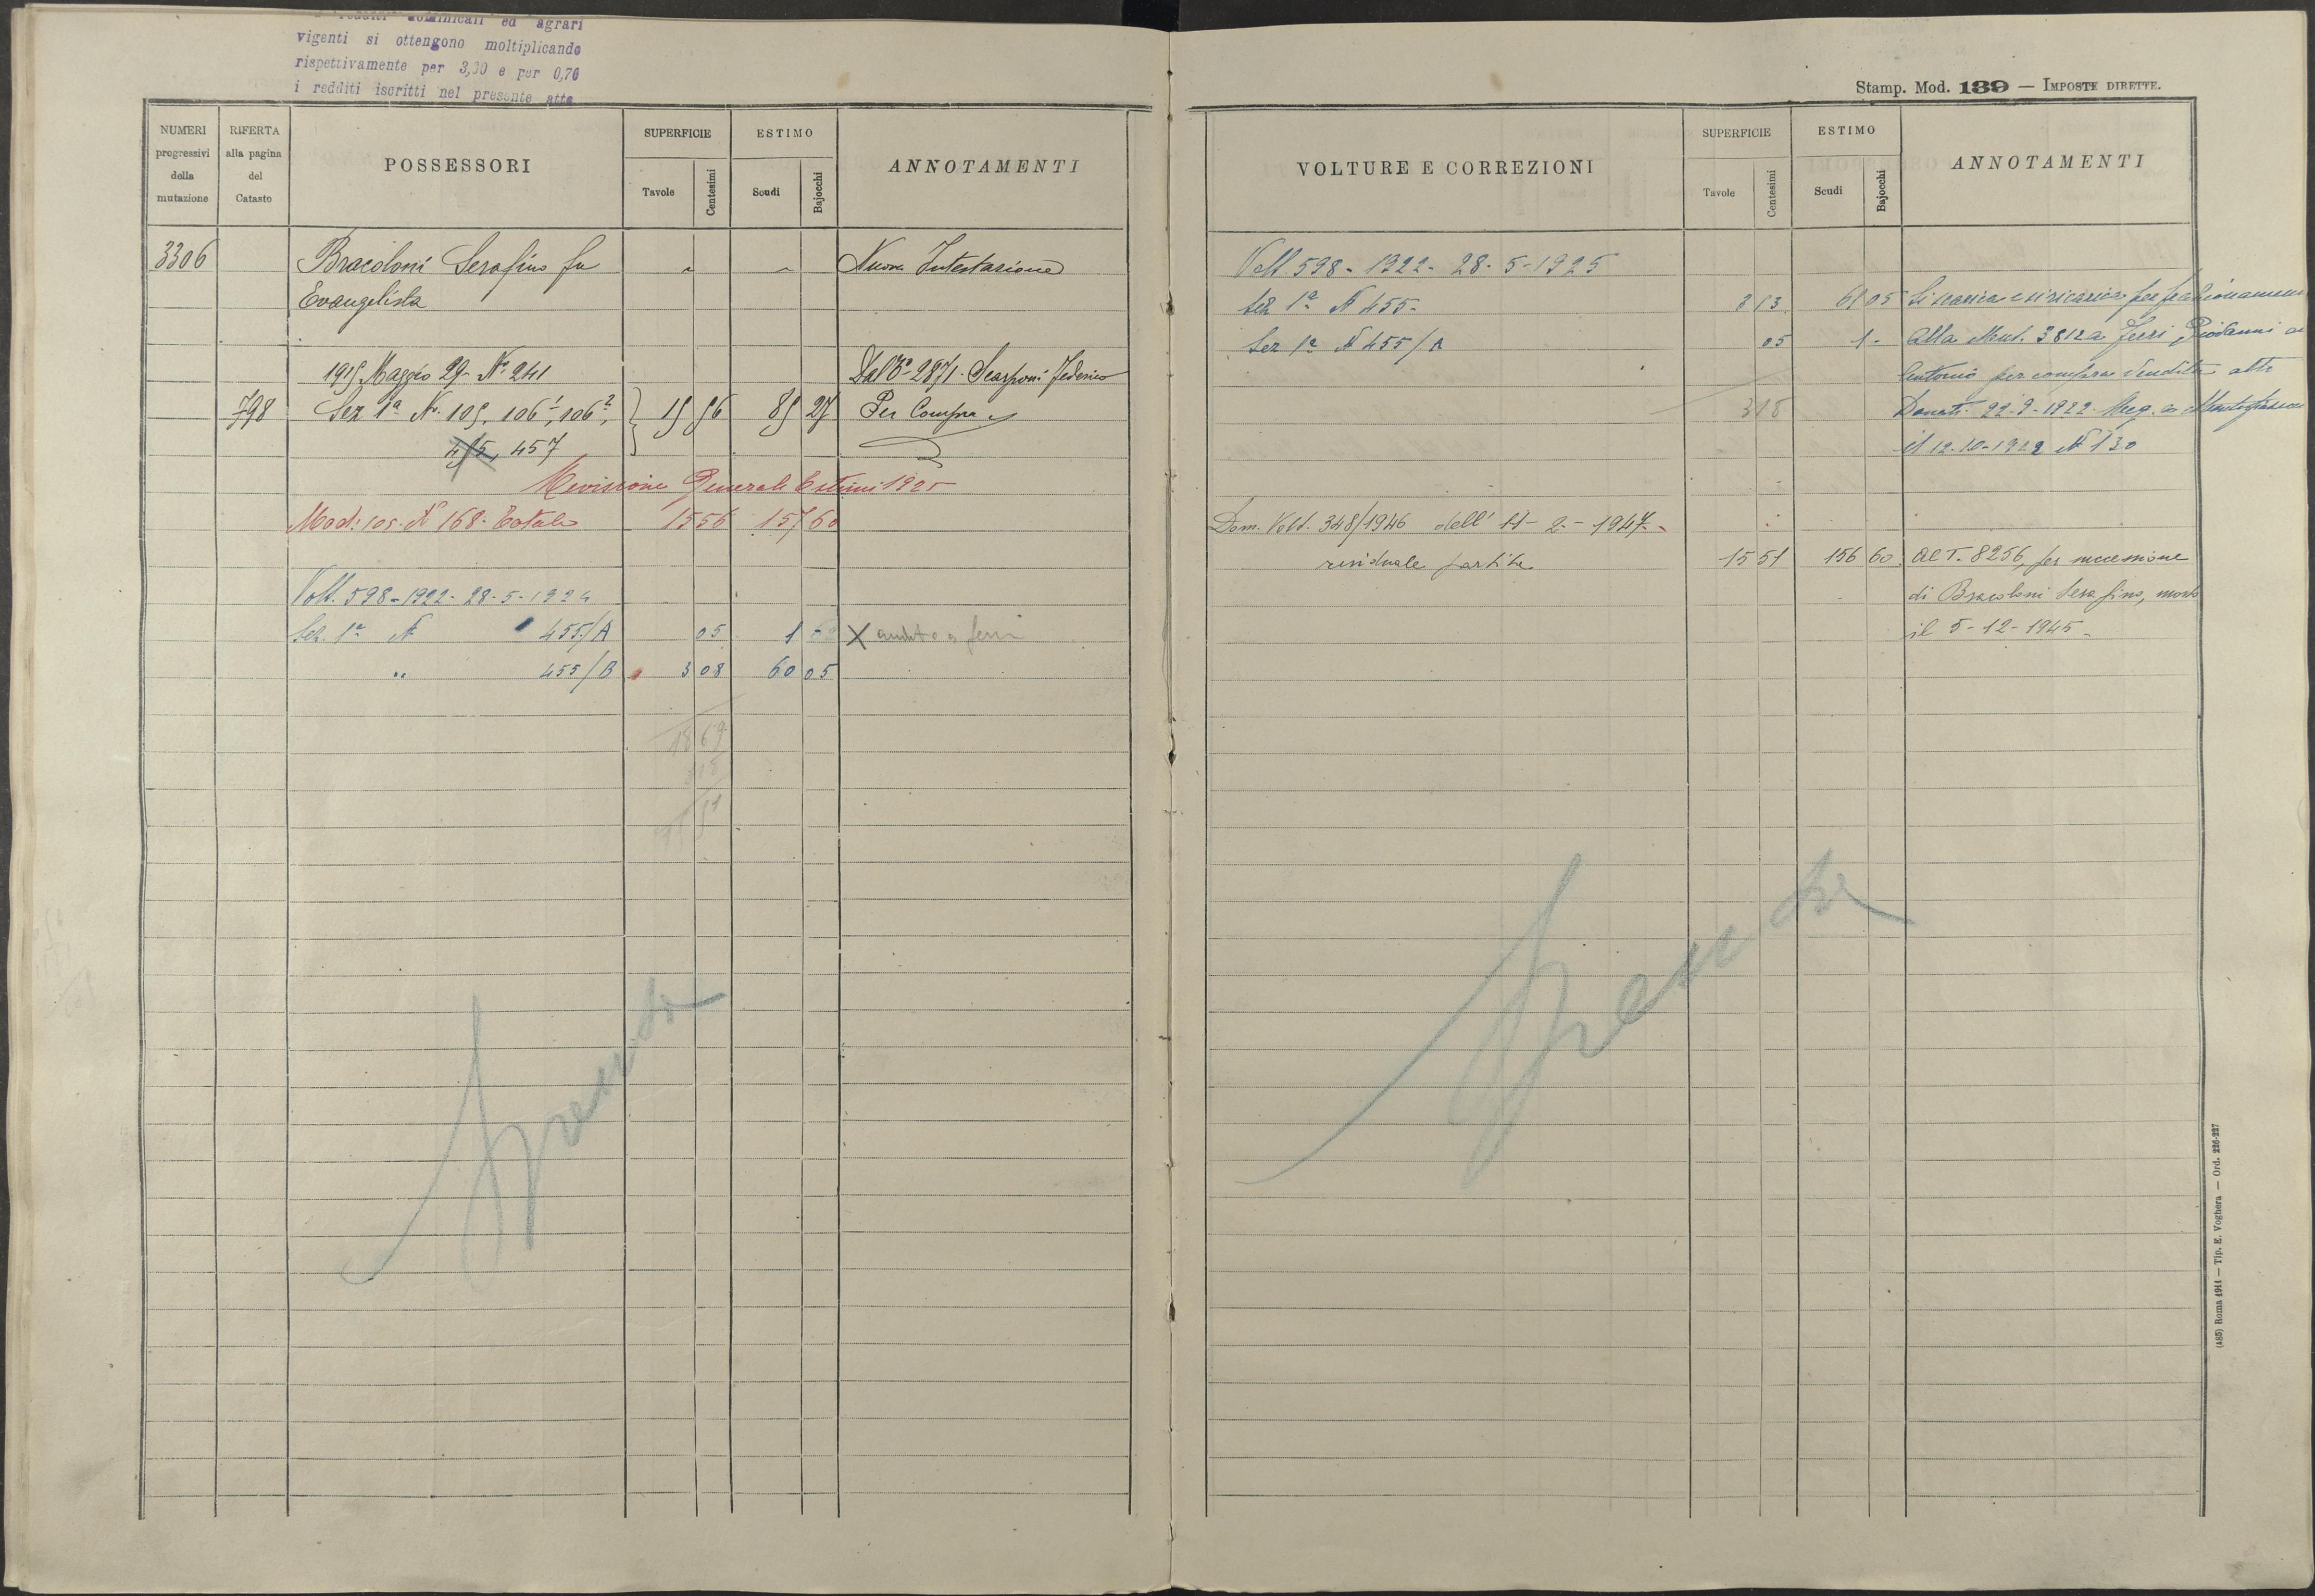 redditi dominicali ed agrari
vigenti si ottengono moltiplicando
rispettivamente per 3,30 e per 0,70
i redditi iscritti nel presente atto
NUMERI progressivi della mutazione
RIFERTA alla pagina del Catasto
POSSESSORI
SUPERFICIE
Tavole
Centesimi
ESTIMO
Scudi
Bajocchi
ANNOTAMENTI
3306 Bracoloni Serafino fu " " Nuova Intestazione
Evangelista
1915 Maggio 29 - Nº 241 Dal Nº 2871 - Scarponi Federico
798 Sez 1ª Nº 105, 106¹, 106², 15 56 85 27 Per Compra
455, 457
Revisione Generale Estimi 1925
Mod: 105 - Nº 168 - Totale 15 56 157 60
Volt. 598 - 1922 - 28 - 5 - 192
Sez. 1ª Nº 455/A 05 1
" 455/B 3 08 60 05
18 69
3 18
15 51
Spenta
Stamp. Mod. 139 — IMPOSTE DIRETTE.
VOLTURE E CORREZIONI
SUPERFICIE
Tavole
Centesimi
ESTIMO
Scudi
Bajocchi
ANNOTAMENTI
Volt. 598 - 1922 - 28 - 5 - 1925
Sez 1ª Nº 455 - 3 13 61 05 Si scarica e si ricarica per frazionamen
Sez 1ª Nº 455/A 05 1 - Alla Mut. 3812 a Ferri Giovanni
Antonio per compra vendita atto
3 18 Donati 22 - 9 - 1922 Reg. a
il 12 - 10 - 1922 Nº 130
Dom. Volt. 348/1946 dell' 11 - 2 - 1947 -
residuale partita 15 51 156 60 Al T. 8256, per successione
di Bracoloni Serafino, morto
il 5 - 12 - 1945 -
Spenta
(485) Roma 1911 — Tip. E. Voghera — Ord. 226-227